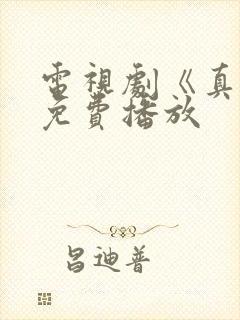 電視劇《真
免費播放
昌迪普